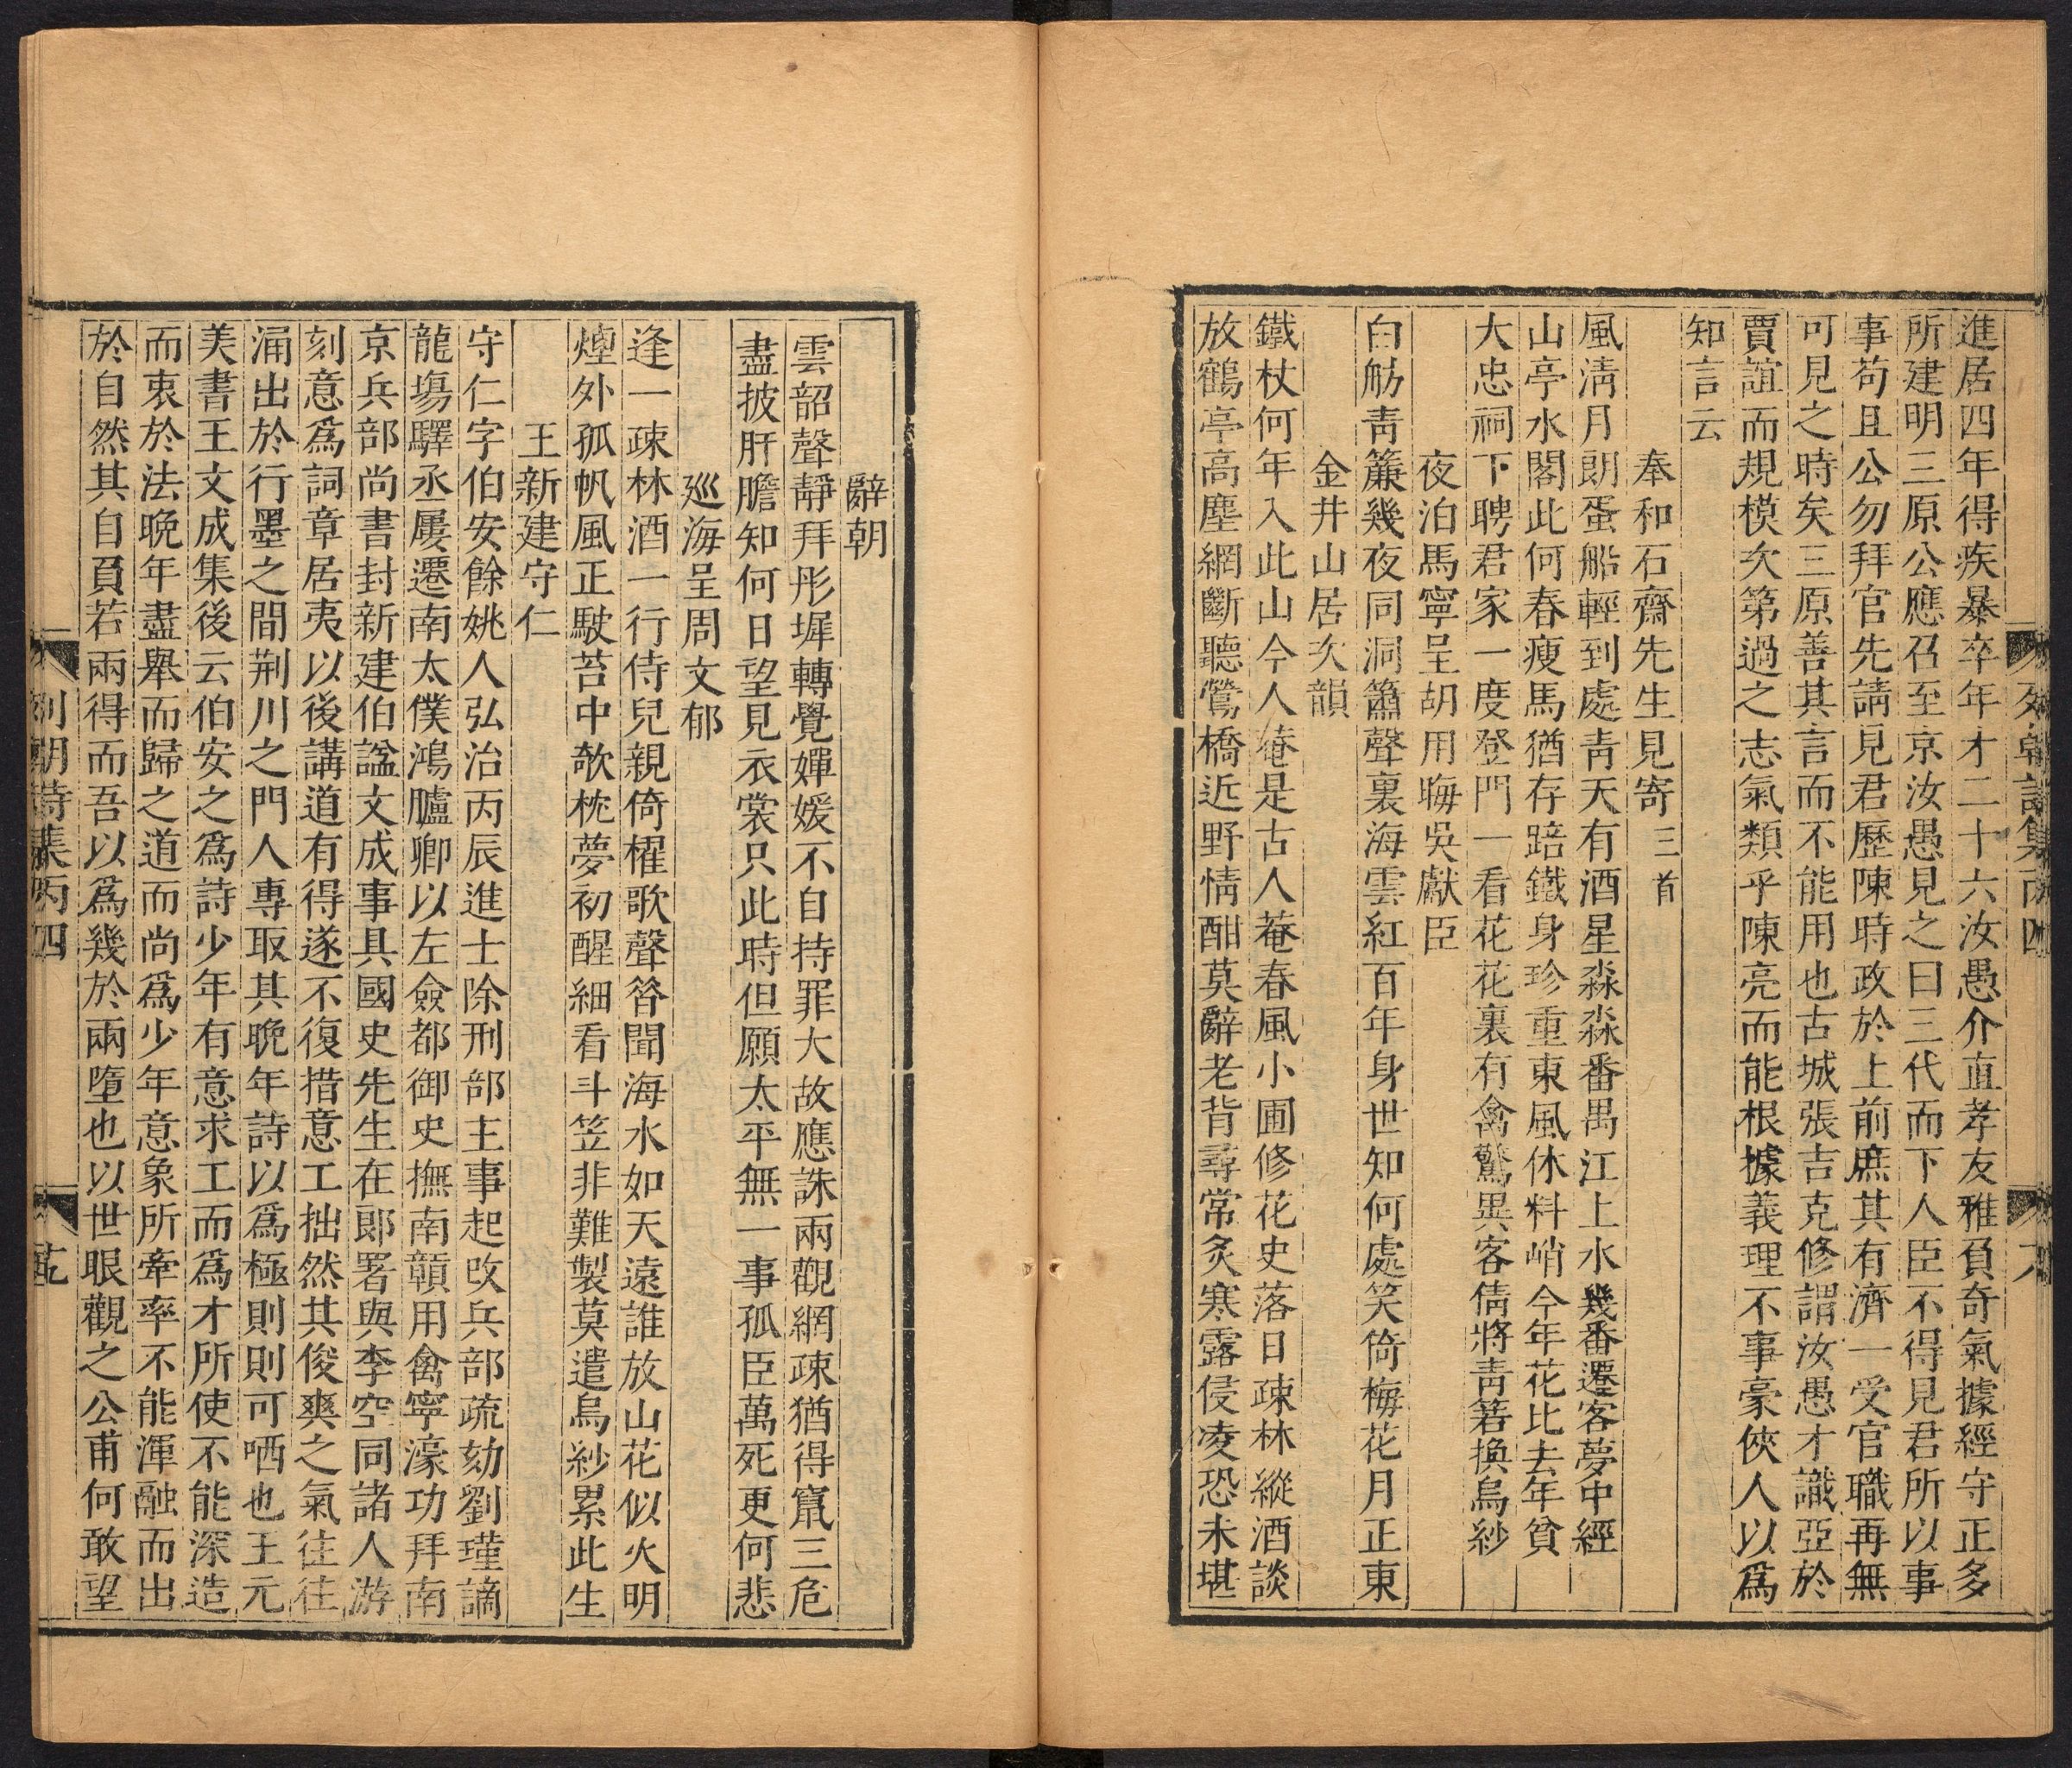 列朝詩集丙四
進居四年得疾暴卒年才二十六汝愚介直孝友雅負奇氣據經守正多
所建明三原公應召至京汝愚見之曰三代而下人臣不得見君所以事
事苟且公勿拜官先請見君歷陳時政於上前庶其有濟一受官職再無
可見之時矣三原善其言而不能用也古城張吉克修謂汝愚才識亞於
賈誼而規模次第過之志氣類乎陳亮而能根據義理不事豪俠人以爲
知言云
奉和石齋先生見寄三首
風淸月朗蛋船輕到處靑天有酒星淼淼番禺江上水幾番遷客夢中經
山亭水閣此何春瘦馬猶存踣鐵身珍重東風休料峭今年花比去年貧
大忠祠下聘君家一度登門一看花花裏有禽驚異客倩將靑箬換烏紗
夜泊馬寧呈胡用晦吳獻臣
白舫靑簾幾夜同洞簫聲裏海雲紅百年身世知何處笑倚梅花月正東
金井山居次韻
鐵杖何年入此山今人菴是古人菴春風小圃修花史落日疎林縱酒談
放鶴亭高塵網斷聽鶯橋近野情酣莫辭老背尋常炙寒露侵凌恐未堪
辭朝
雲韶聲靜拜彤墀轉覺嬋媛不自持罪大故應誅兩觀網疎猶得竄三危
盡披肝膽知何日望見衣裳只此時但願太平無一事孤臣萬死更何悲
巡海呈周文郁
逢一疎林酒一行侍兒親倚櫂歌聲䇟聞海水如天遠誰放山花似火明
煙外孤帆風正駛苔中欹枕夢初醒細看斗笠非難製莫遣烏紗累此生
王新建守仁
守仁字伯安餘姚人弘治丙辰進士除刑部主事起改兵部疏劾劉瑾謫
龍塲驛丞屢遷南太僕鴻臚卿以左僉都御史撫南贑用禽寧濠功拜南
京兵部尚書封新建伯諡文成事具國史先生在郎署與李空同諸人游
刻意爲詞章居夷以後講道有得遂不復措意工拙然其俊爽之氣往往
涌出於行墨之間荆川之門人專取其晚年詩以爲極則則可哂也王元
美書王文成集後云伯安之爲詩少年有意求工而爲才所使不能深造
而衷於法晚年盡舉而歸之道而尚爲少年意象所牽率不能渾融而出
於自然其自負若兩得而吾以爲幾於兩墮也以世眼觀之公甫何敢望
列朝詩集丙四